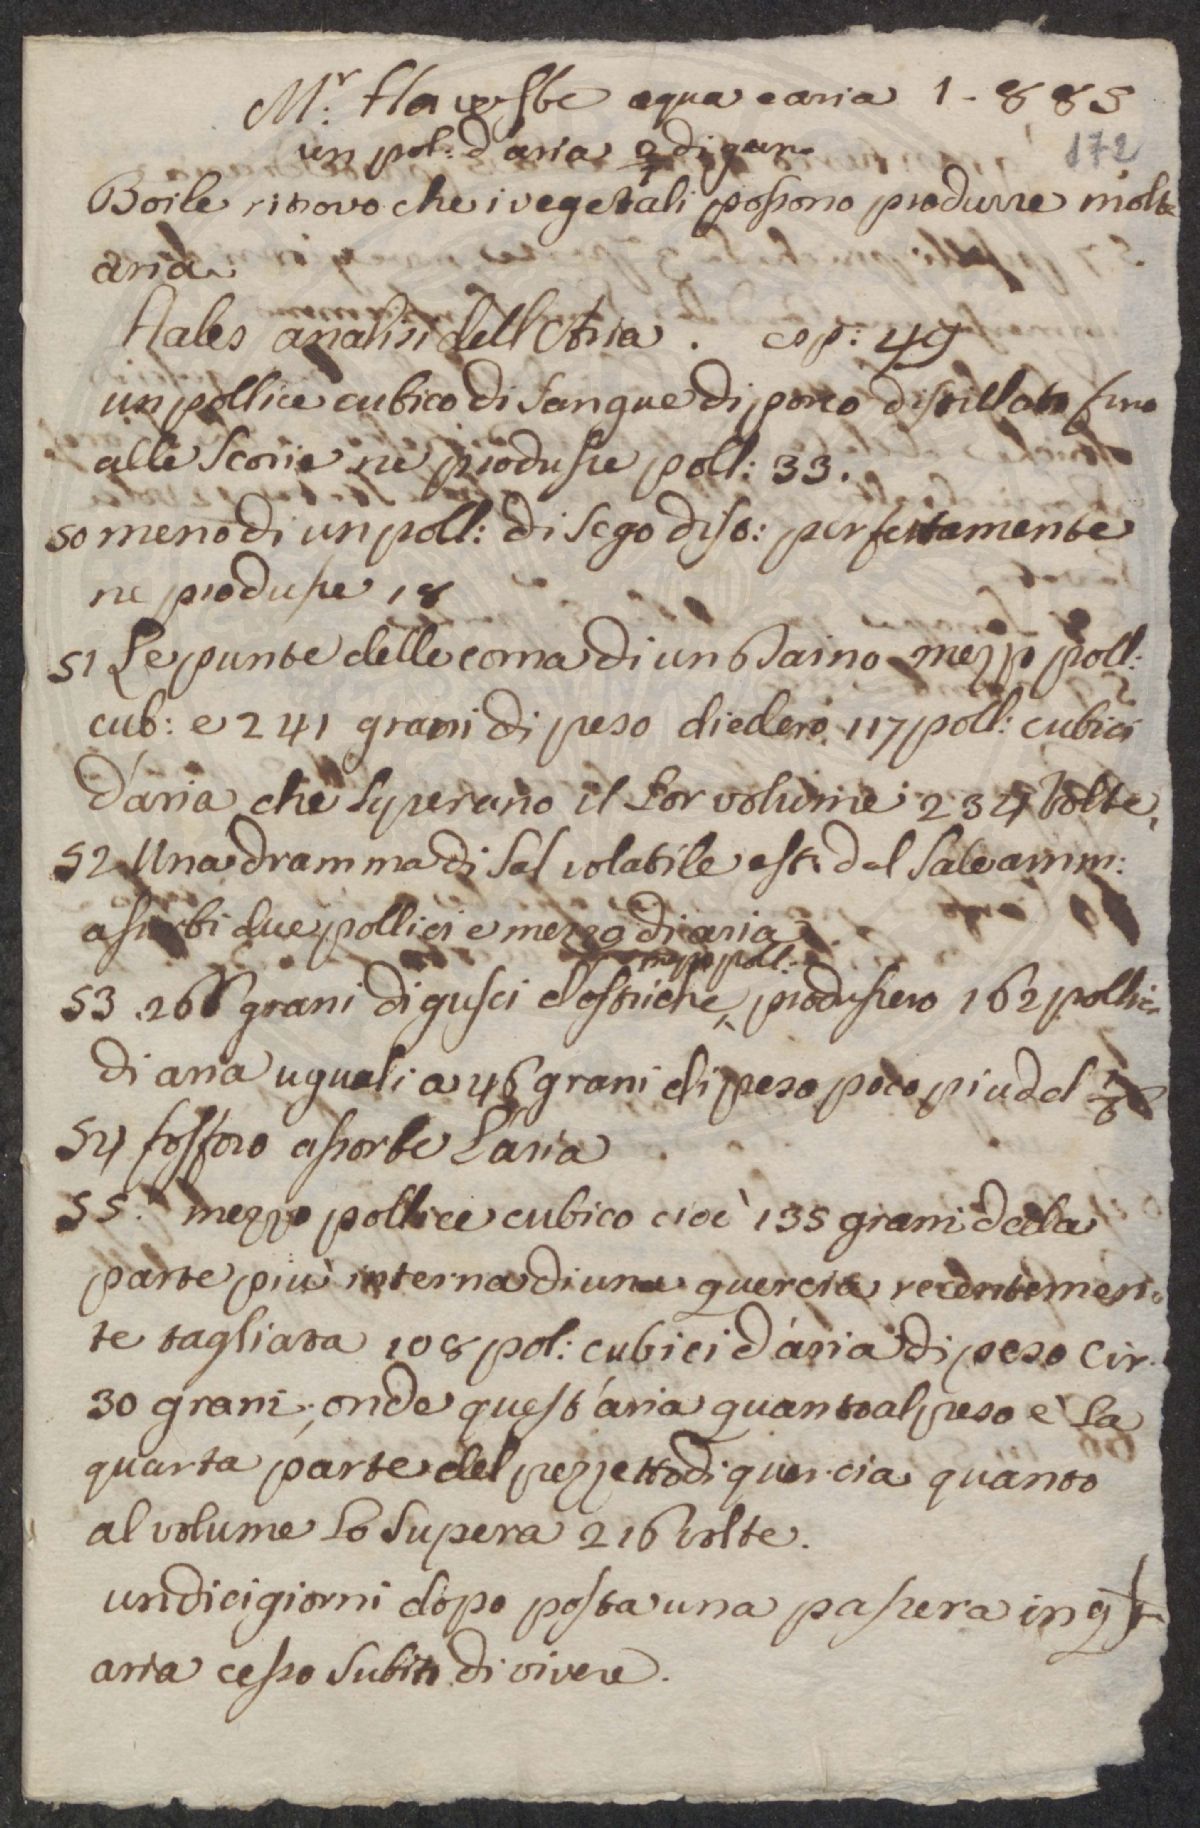 Mr. Hawksbe aqua e aria 1 - 885
172
un pol: d'aria 2/7 di gran.
Boile ritrovo che i vegetali possono produrre molta
aria.
Hales analisi dell Aria. esp: 49
un pollice cubico di sangue di porco distillato fino
alle scorie ne produsse poll: 33.
50 meno di un poll: di sego dist: perfettamente
ne produsse 18
51 Le punte delle corna di un Daino mezzo poll:
cub: e 241 grani di peso diedero 117 poll: cubici
d'aria che superano il lor volume 234 volte,
52 Una dramma di sal volatile est. dal sale amm:
assorbi due pollici e mezzo di aria
mezzo poll:
53. 266 grani di gusci d'ostriche produssero 162 pollici
di aria uguali a 46 grani di peso poco piu del 1/6
54 fosforo assorbe l'aria
55. mezzo pollice cubico cioè 135 grani della
parte più interna di una quercia recentemen-
te tagliata 108 pol: cubici d'aria di peso cir.
30 grani; onde quest'aria quanto al peso è la
quarta parte del pezzetto di quercia quanto
al volume lo supera 216 volte.
undici giorni dopo posta una passera in qta
aria cesso subito di vivere.